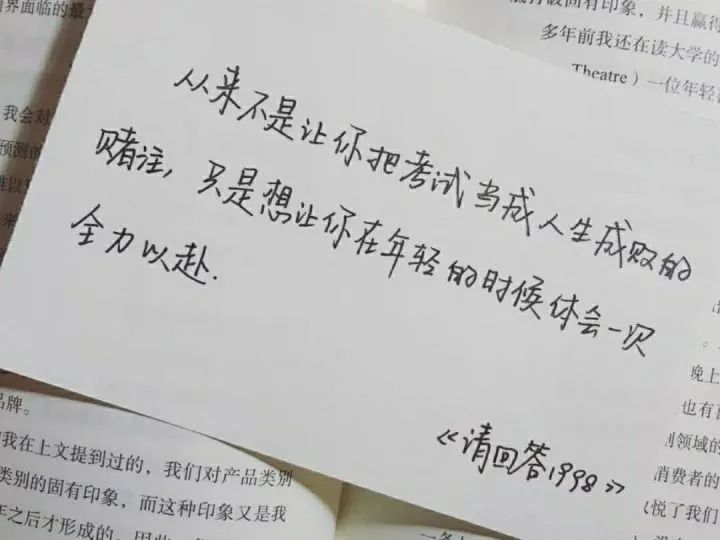 界面临的最
有印象，并且赢得
多年前我还在读大学的
Theatre）一位年轻
我会对
预测的
从来不是让你把考试当成人生成败的
赌注，只是想让你在年轻的时候体会一次
全力以赴.
《请回答1998》
晚上
也有
别领域的
消费者的
悦了我们
品牌。
我在上文提到过的，我们对产品类别
类别的固有印象，而这种印象又是我
之后才形成的。因此